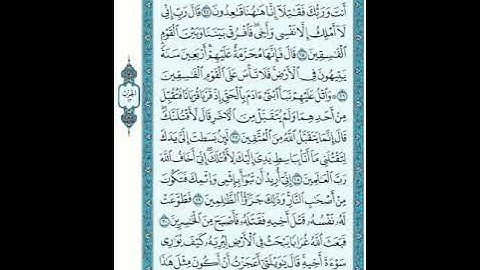 أَنتَ وَرَبُّكَ فَقَٰتِلَآ إِنَّا هَٰهُنَا قَٰعِدُونَ ٢٤ قَالَ رَبِّ إِنِّي
لَآ أَمْلِكُ إِلَّا نَفْسِي وَأَخِيۖ فَٱفْرُقْ بَيْنَنَا وَبَيْنَ ٱلْقَوْمِ
ٱلْفَٰسِقِينَ ٢٥ قَالَ فَإِنَّهَا مُحَرَّمَةٌ عَلَيْهِمْۛ أَرْبَعِينَ سَنَةًۛ
يَتِيهُونَ فِي ٱلْأَرْضِۚ فَلَا تَأْسَ عَلَى ٱلْقَوْمِ ٱلْفَٰسِقِينَ
٢٦ ۞ وَٱتْلُ عَلَيْهِمْ نَبَأَ ٱبْنَيْ ءَادَمَ بِٱلْحَقِّ إِذْ قَرَّبَا قُرْبَانًا فَتُقُبِّلَ
مِنْ أَحَدِهِمَا وَلَمْ يُتَقَبَّلْ مِنَ ٱلْأٓخَرِ قَالَ لَأَقْتُلَنَّكَۖ
قَالَ إِنَّمَا يَتَقَبَّلُ ٱللَّهُ مِنَ ٱلْمُتَّقِينَ ٢٧ لَئِنۢ بَسَطتَ إِلَيَّ يَدَكَ
لِتَقْتُلَنِي مَآ أَنَا۠ بِبَاسِطٖ يَدِيَ إِلَيْكَ لِأَقْتُلَكَۖ إِنِّيٓ أَخَافُ ٱللَّهَ
رَبَّ ٱلْعَٰلَمِينَ ٢٨ إِنِّيٓ أُرِيدُ أَن تَبُوٓأَ بِإِثْمِي وَإِثْمِكَ فَتَكُونَ
مِنْ أَصْحَٰبِ ٱلنَّارِۚ وَذَٰلِكَ جَزَٰٓؤُاْ ٱلظَّٰلِمِينَ ٢٩ فَطَوَّعَتْ
لَهُۥ نَفْسُهُۥ قَتْلَ أَخِيهِ فَقَتَلَهُۥ فَأَصْبَحَ مِنَ ٱلْخَٰسِرِينَ ٣٠
فَبَعَثَ ٱللَّهُ غُرَابٗا يَبْحَثُ فِي ٱلْأَرْضِ لِيُرِيَهُۥ كَيْفَ يُوَٰرِي
سَوْءَةَ أَخِيهِۚ قَالَ يَٰوَيْلَتَىٰٓ أَعَجَزْتُ أَنْ أَكُونَ مِثْلَ هَٰذَا